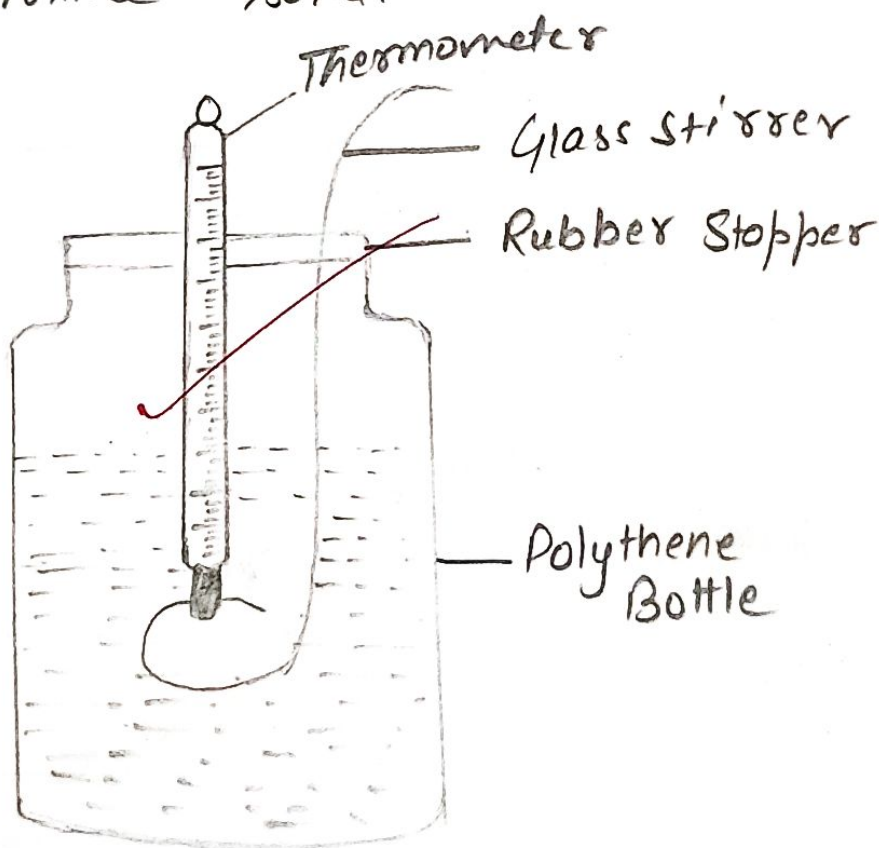 Thermometer
Glass stirrer
Rubber Stopper
Polythene
Bottle